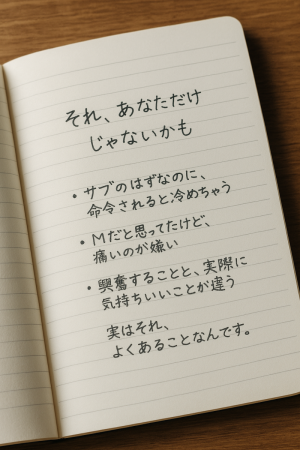 それ、あなただけ
じゃないかも
・サブのはずなのに、
命令されると冷めちゃう
・Mだと思ってたけど、
痛いのが嫌い
・興奮することと、実際に
気持ちいいことが違う
実はそれ、
よくあることなんです。